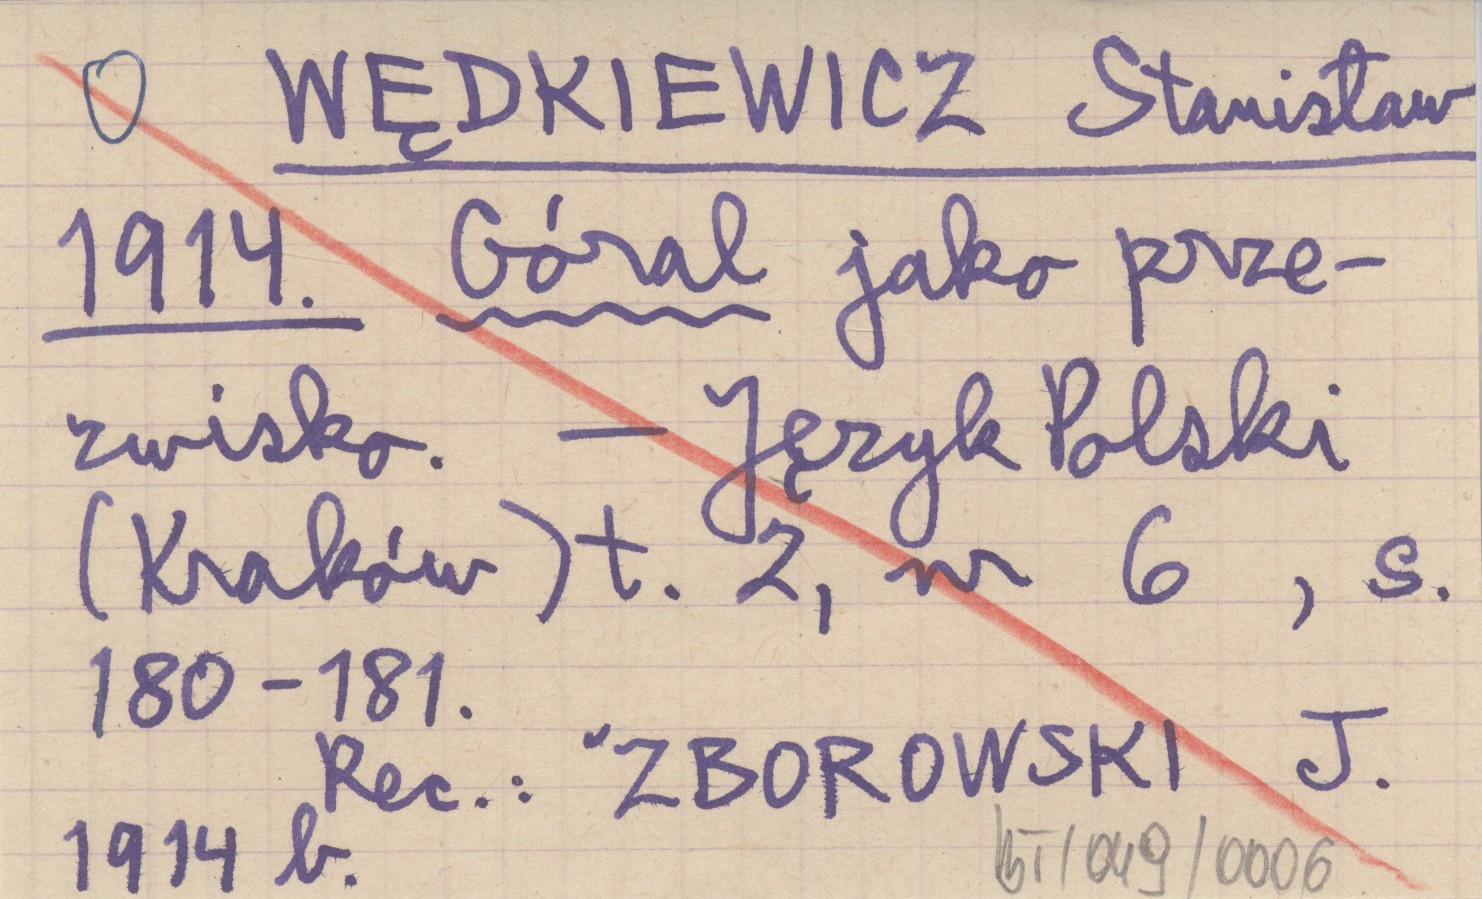 WĘDKIEWICZ Stanisław
1914. Góral jako prze-
zwisko. — Język Polski
(Kraków) t. 2, nr 6, s.
180-181.
Rec.: ZBOROWSKI J.
1914 b.
/049/0006